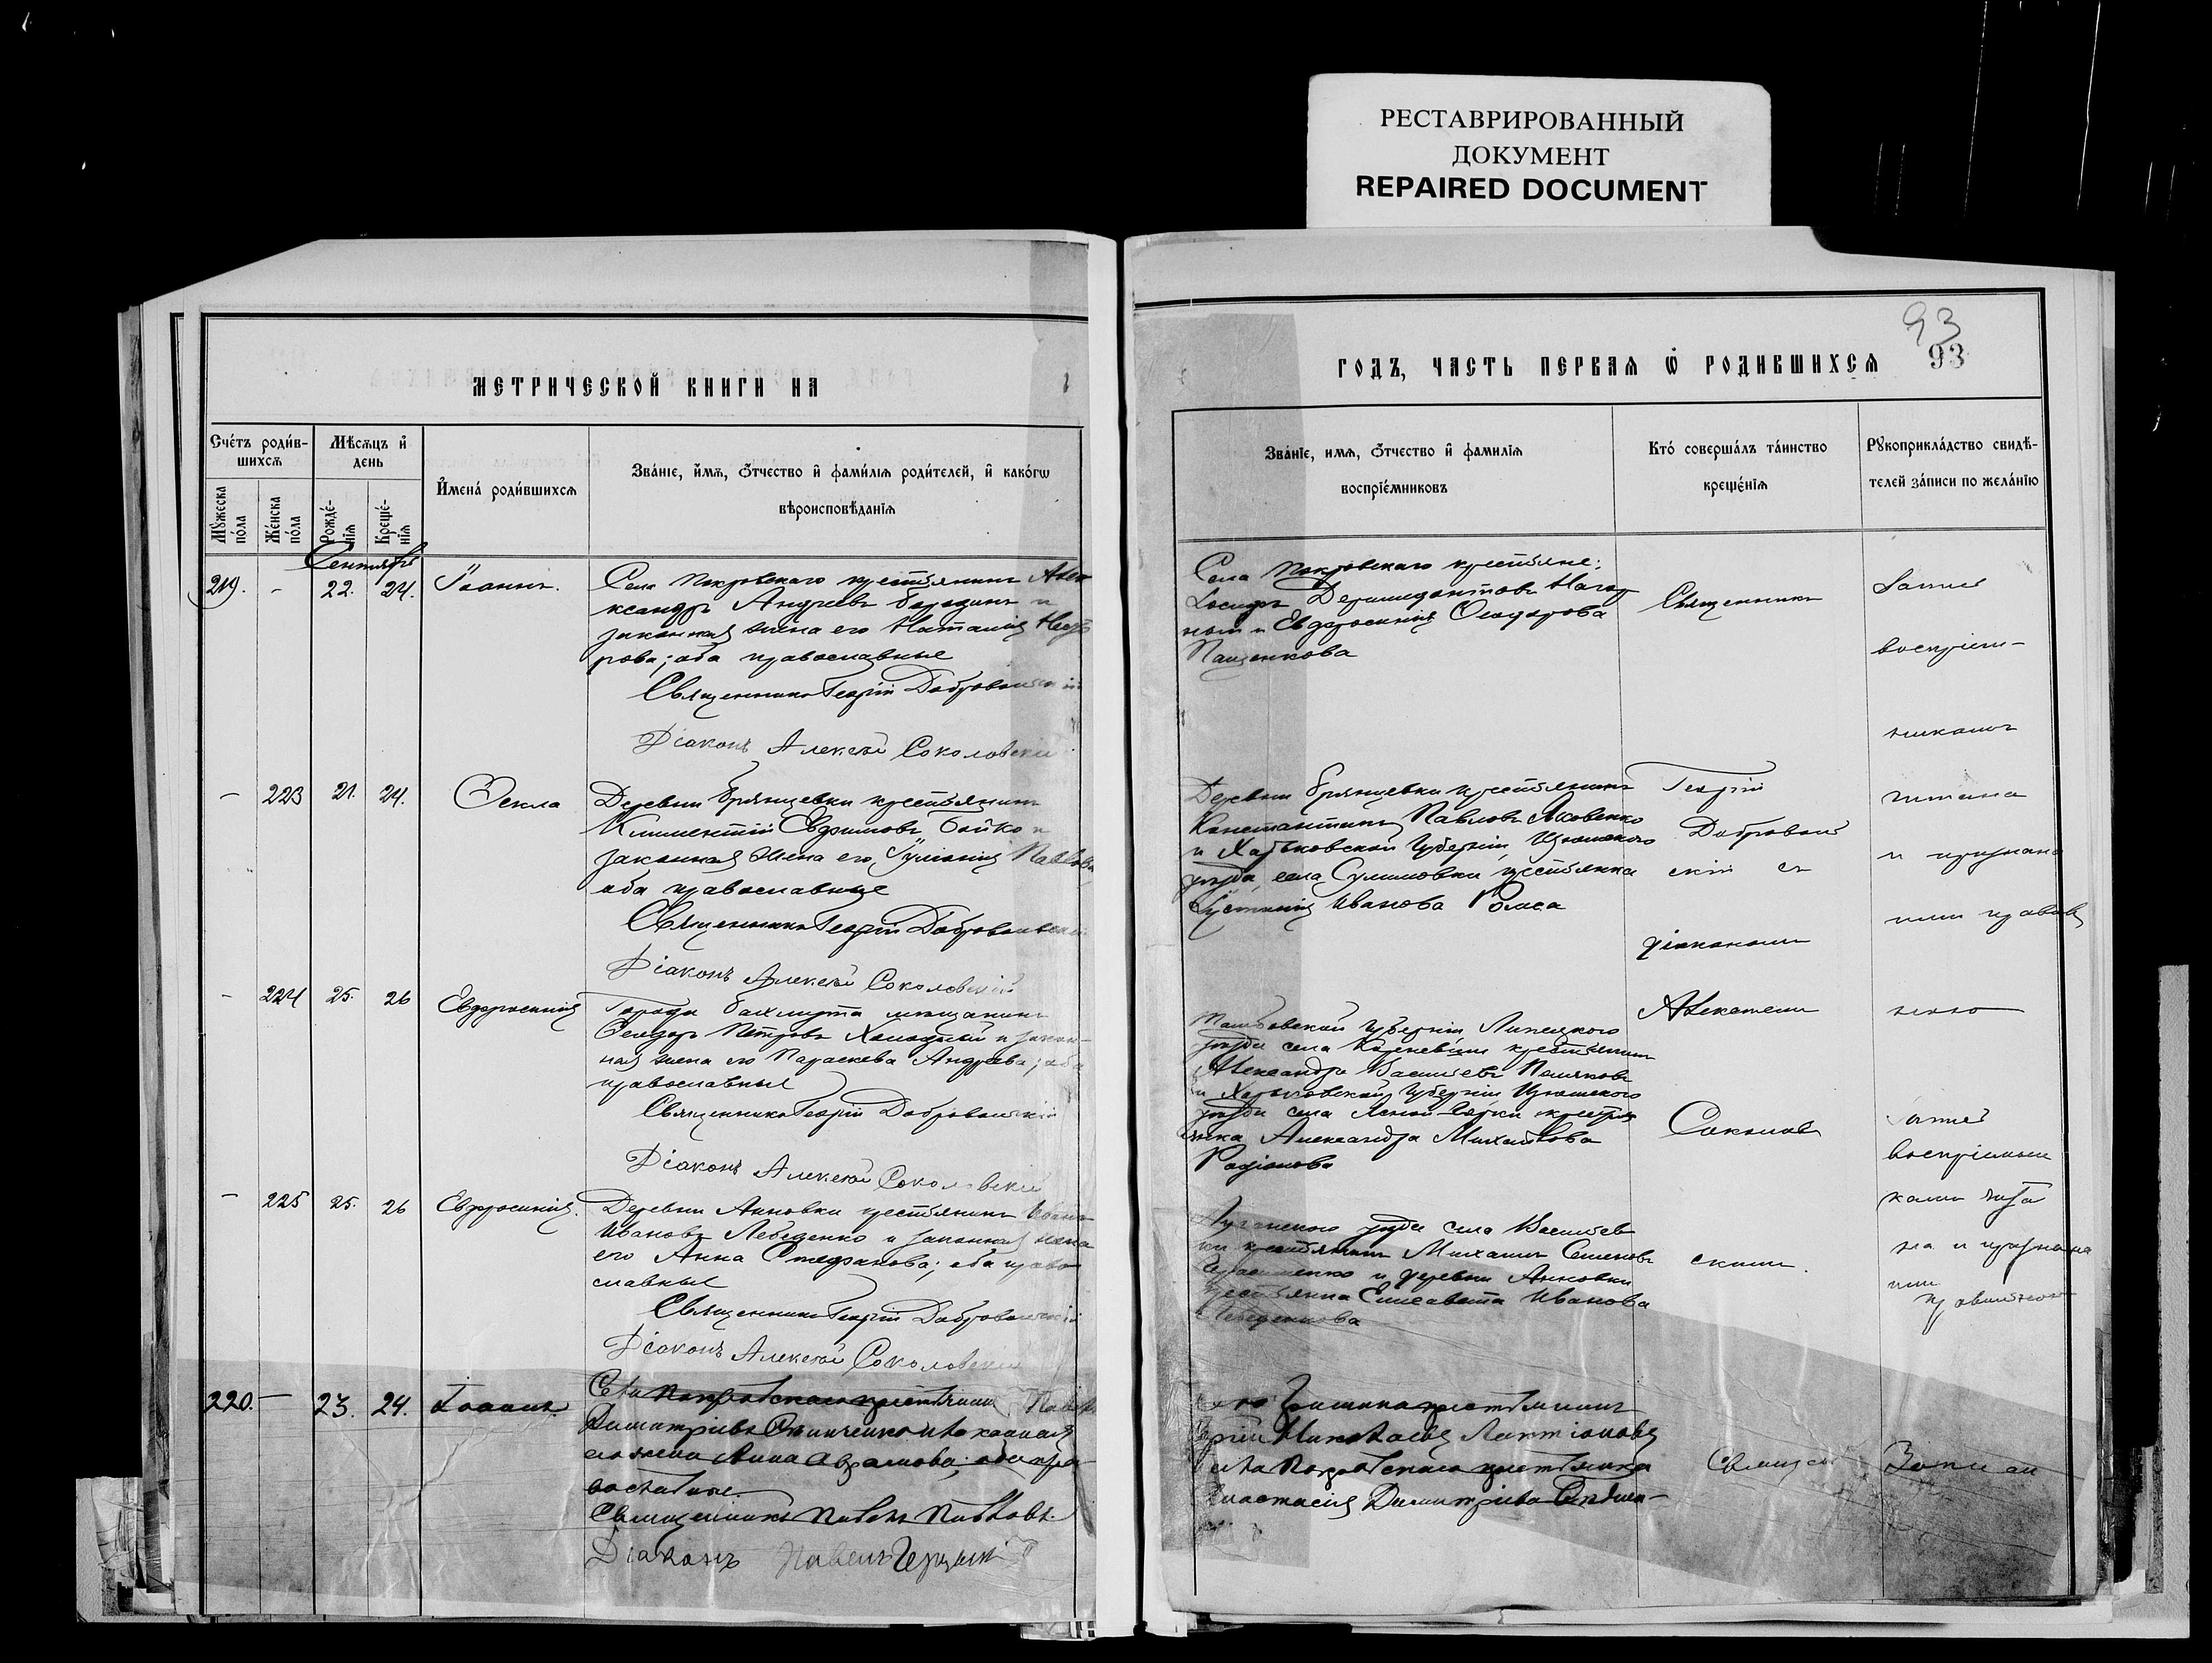 РЕСТАВРИРОВАННЫЙ
ДОКУМЕНТ
REPAIRED DOCUMENT
МЕТРИЧЕСКОЙ КНИГИ НА
Счéтъ роди́в-
шихсѧ
Мѣ́сѧцъ и҆
день
Мꙋ́жеска
по́ла
Же́нска
по́ла
Рожде́-
нїѧ
Креще́-
нїѧ
И҆мена́ роди́вшихсѧ
Зва́нїе, и҆́мѧ, ѻ҆́тчество и҆ фамѝлїѧ роди́телей, и҆ како́гѡ
вѣроисповѣ́данїѧ
Сентябрь
219. - 22. 24. Іоаннъ.
Села Покровскаго крестьянинъ Алек
ксандръ Андреевъ Бородинъ и
законная жена его Наталия
рова; оба православные
Священникъ Георгій Добровольскій
Діаконъ Алексѣй Соколовскій
- 223 21. 24. Ѳекла
Деревни Брянцевки крестьянинъ
Климентій Евфимовъ Бойко и
законная жена его Іуліанія Павлова
оба православные
Священникъ Георгій Добровольскій
Діаконъ Алексѣй Соколовскій
- 224 25. 26 Евфросинія
Города Бахмута мещанинъ
Ѳеодоръ Петровъ Холодный и закон-
ная жена его Параскева Андреева; оба
православные
Священникъ Георгій Добровольскій
Діаконъ Алексѣй Соколовскій
- 225 25. 26 Евфросинія.
Деревни Анновки крестьянинъ Иванъ
Ивановъ Лебеденко и законная жена
его Анна Стефанова; оба право
славные
Священникъ Георгій Добровольскій
Діаконъ Алексѣй Соколовскій
220. - 23. 24. Іоаннъ
Села Покровскаго крестьянинъ
Димитріевъ и законная
его жена Анна Аврамова; оба пра-
вославные.
Священникъ Павелъ Павловъ.
Діаконъ Павелъ
93
ГОДЪ, ЧАСТЬ ПЕРВАѦ Ѡ҆ РОДИВШИХСѦ 93
Зва́нїе, имѧ, ѻ҆́тчество и҆ фамилїѧ
воспрїе́мниковъ
Кто́ соверша́лъ та́инство
креще́нїѧ
Рꙋкоприкла́дство свидѣ́-
телей за́писи по жела́нїю
Села Покровскаго крестьяне:
и Евфросинія Ѳеодорова
Пащенкова
Священникъ
Запись
воспріем-
никами
читана
и признана
ими правиль
ною
Деревни Брянцевки крестьянинъ
Константинъ Павловъ Яковенко
и Харьковской губерніи, Изюмскаго
уезда, села Сулимовки крестьянка
Іустинія Иванова
Георгій
Добровол
скій съ
діакономъ
Алексеемъ
Соколов
скимъ.
Тамбовской губерніи Липецкаго
уезда села крестьянинъ
Александръ Васильевъ Поляковъ
и Харьковской губерніи Изюмскаго
уезда села крестья
нка Александра Михайлова
Радіонова
Запись
воспріемни
ками чита
на и признана
ими
правильною
уезда села Васильев
ки крестьянинъ Михаилъ Семеновъ
и деревни Анновки
крестьянка Елисавета Иванова
Лебеденкова
крестьянинъ
Николаевъ Лактіоновъ
села Покровскаго крестьянка
Анастасія Димитріева
Священ
Записи